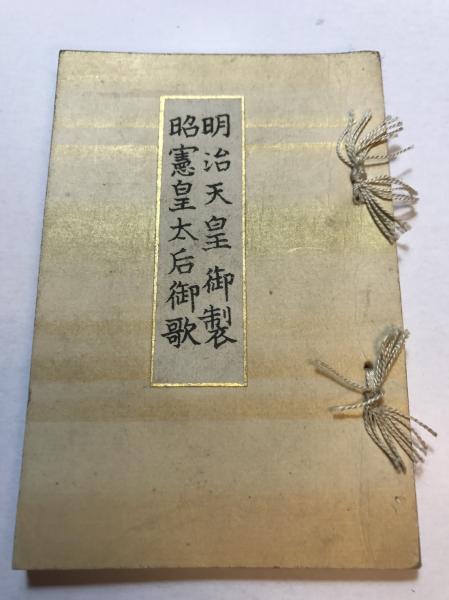 明治天皇御製
昭憲皇太后御歌